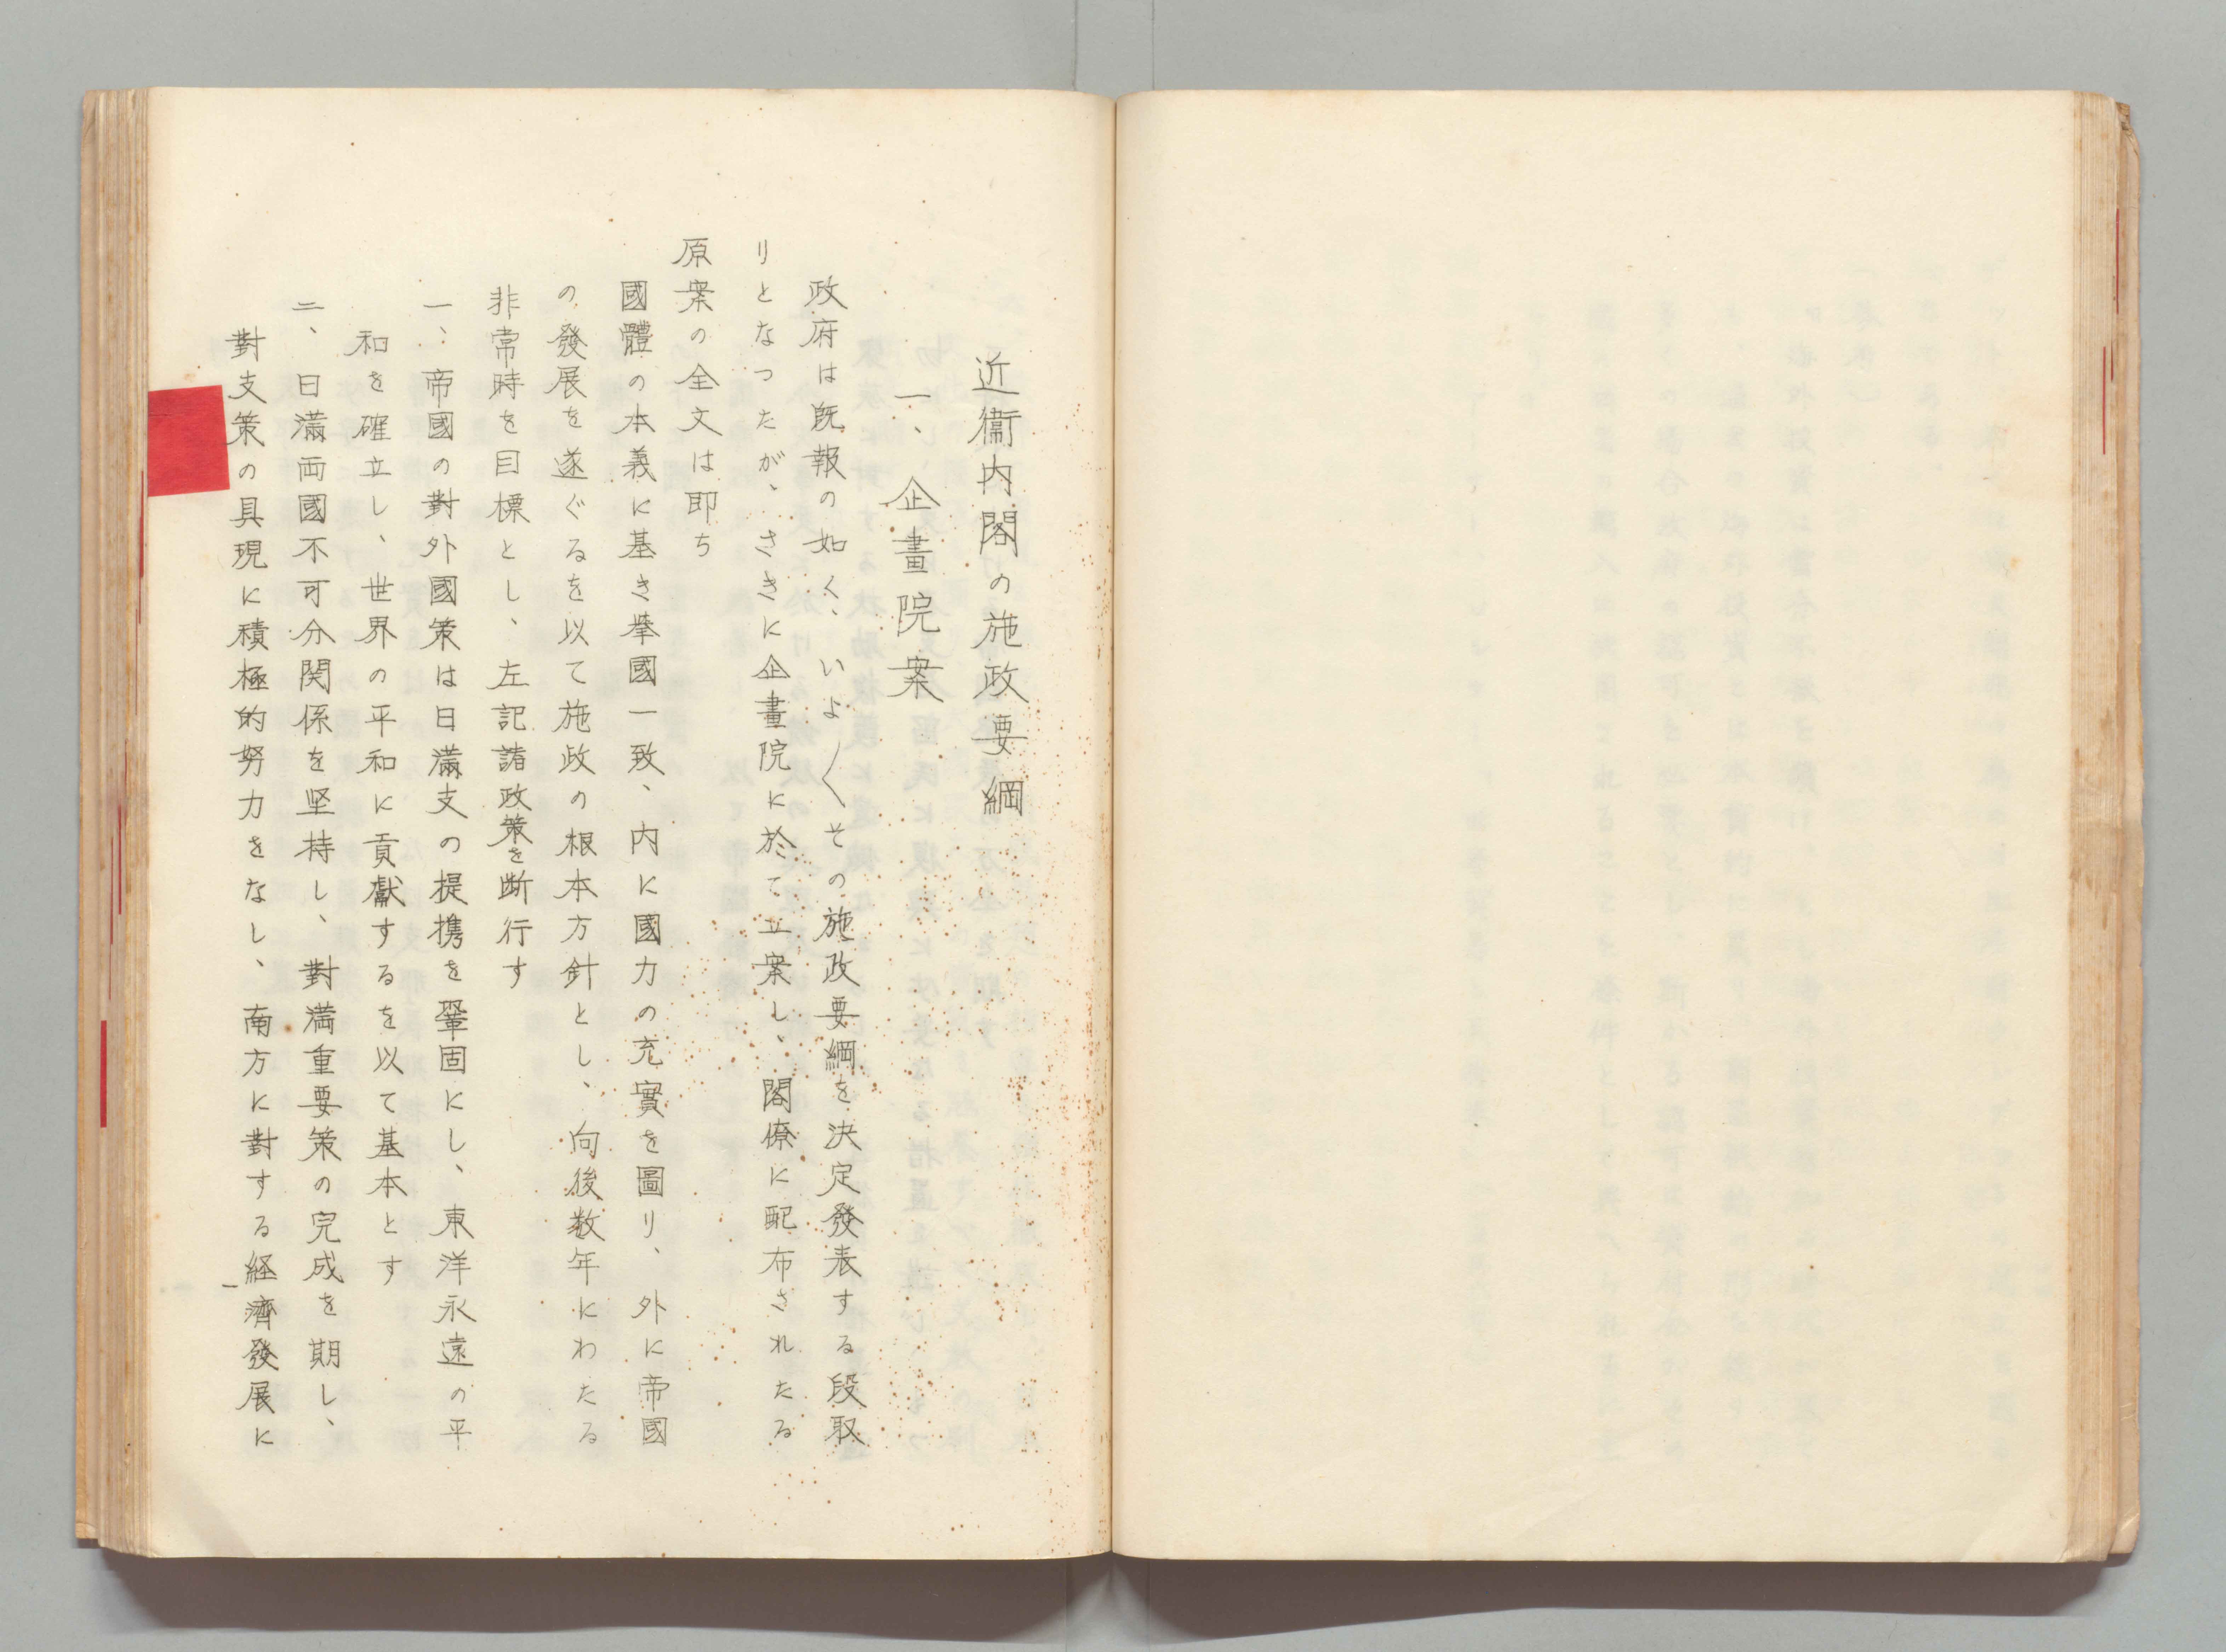 近衞内閣の施政要綱
一、企畫院案
政府は既報の如く、いよ〱その施政要綱を決定發表する段取
りとなつたが、さきに企畫院に於て立案し、閣僚に配布されたる
原案の全文は即ち
國體の本義に基き擧國一致、内に國力の充實を圖り、外に帝國
の發展を遂ぐるを以て施政の根本方針とし、向後数年にわたる
非常時を目標とし、左記諸政策を断行す
一、帝國の對外國策は日滿支の提携を鞏固にし、東洋永遠の平
和を確立し、世界の平和に貢獻するを以て基本とす
二、日滿両國不可分関係を坚持し、對満重要策の完成を期し、
對支策の具現に積極的努力をなし、南方に對する経濟發展に
一